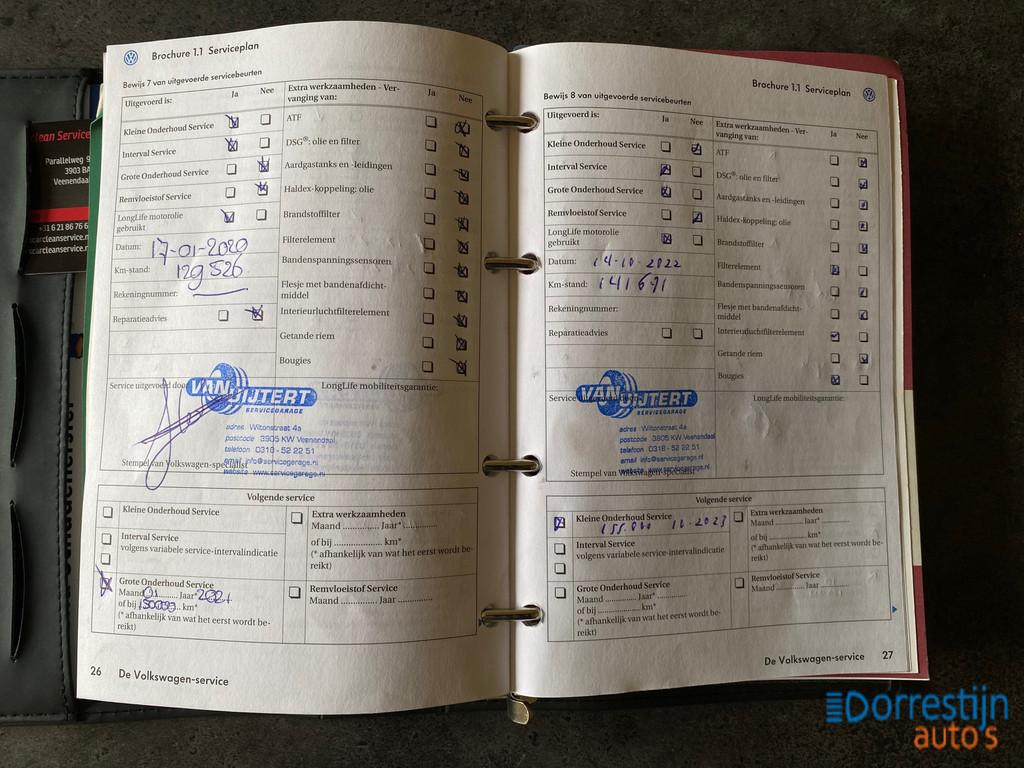 Brochure 1.1 Serviceplan
Bewijs 7 van uitgevoerde servicebeurten
Uitgevoerd is:
Ja
Nee
Kleine Onderhoud Service
Interval Service
Grote Onderhoud Service
Remvloeistof Service
LongLife motorolie
gebruikt
Datum: 17-01-2020
Km-stand: 129526
Rekeningnummer:
Reparatieadvies
Extra werkzaamheden - Ver-
vanging van:
Ja
Nee
ATF
DSG®: olie en filter
Aardgastanks en -leidingen
Haldex-koppeling: olie
Brandstoffilter
Filterelement
Bandenspanningssensoren
Flesje met bandenafdicht-
middel
Interieurluchtfilterelement
Getande riem
Bougies
Service uitgevoerd door
LongLife mobiliteitsgarantie:
VAN
UIJTERT
SERVICEGARAGE
adres Wiltonstraat 4a
postcode 3905 KW Veenendaal
telefoon 0318 - 52 22 51
email info@servicegarage.nl
website www.servicegarage.nl
Stempel van Volkswagen-specialist
Volgende service
Kleine Onderhoud Service
Interval Service
volgens variable service-intervalindicatie
Grote Onderhoud Service
Maand 01 Jaar* 2021
of bij 150000 km*
(* afhankelijk van wat het eerst wordt be-
reikt)
Extra werkzaamheden
Maand .............. Jaar* ..............
of bij .............. km*
(* afhankelijk van wat het eerst wordt be-
reikt)
Remvloeistof Service
Maand .............. Jaar ..............
26 De Volkswagen-service
Brochure 1.1 Serviceplan
Bewijs 8 van uitgevoerde servicebeurten
Uitgevoerd is:
Ja
Nee
Kleine Onderhoud Service
Interval Service
Grote Onderhoud Service
Remvloeistof Service
LongLife motorolie
gebruikt
Datum: 14-10-2022
Km-stand: 141691
Rekeningnummer:
Reparatieadvies
Extra werkzaamheden - Ver-
vanging van:
Ja
Nee
ATF
DSG®: olie en filter
Aardgastanks en -leidingen
Haldex-koppeling: olie
Brandstoffilter
Filterelement
Bandenspanningssensoren
Flesje met bandenafdicht-
middel
Interieurluchtfilterelement
Getande riem
Bougies
Service
LongLife mobiliteitsgarantie:
VAN
UIJTERT
SERVICEGARAGE
adres Wiltonstraat 4a
postcode 3905 KW Veenendaal
telefoon 0318 - 52 22 51
email info@servicegarage.nl
website www.servicegarage.nl
Stempel van
Volgende service
Kleine Onderhoud Service
Interval Service
volgens variable service-intervalindicatie
Grote Onderhoud Service
Maand .............. Jaar* ..............
of bij .............. km*
(* afhankelijk van wat het eerst wordt be-
reikt)
Extra werkzaamheden
Maand .............. Jaar* ..............
of bij .............. km*
(* afhankelijk van wat het eerst wordt be-
reikt)
Remvloeistof Service
Maand .............. Jaar ..............
De Volkswagen-service 27
clean Service
Parallelweg 9
3903 BA
Veenendaal
+31 6 21 86 76 6
carcleanservice.n
Dorrestijn
auto's